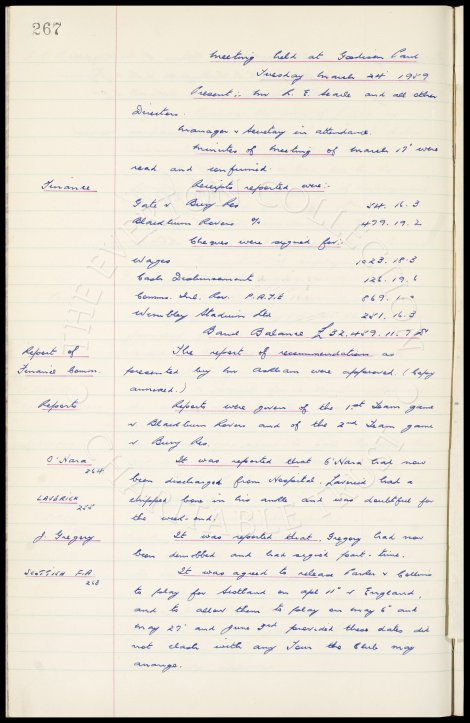 267
Meeting held at Goodison Park
Tuesday March 24 1959
Present:- Mr R. E. Searle and all other
Directors.
Manager & Secretary in attendance.
Minutes of Meeting of March 17' were
read and confirmed.
Finance Receipts reported were:-
Gate v. Bury Res 54. 16. 3
Blackburn Rovers % 479. 19. 2
Cheques were signed for:-
Wages 1023. 18. 3
Cash Disbursements 126. 19. 6
Comms. Inl. Rev. P.A.Y.E 869. 1-0
Wembley Stadium Ltd 251. 16. 3
Bank Balance £32,459. 11. 7
Report of The report of recommendations as
Finance Comm. presented by Mr were approved. (Copy
annexed.)
Reports Reports were given of the 1st Team game
v Blackburn Rovers and of the 2nd Team game
v Bury Res.
O'Hara It was reported that O'Hara had now
264
been discharged from Hospital. Laverick had a
LAVERICK chipped bone in his ankle and was doubtful for
255
the week-end.
J. Gregory It was reported that Gregory had now
been demobbed and had signed part-time.
SCOTTISH F.A It was agreed to release Parker & Collins
263
to play for Scotland on Apl 11' v England,
and to allow them to play on May 6' and
May 27' and June 3rd provided these dates did
not clash with any Tour the Club may
arrange.